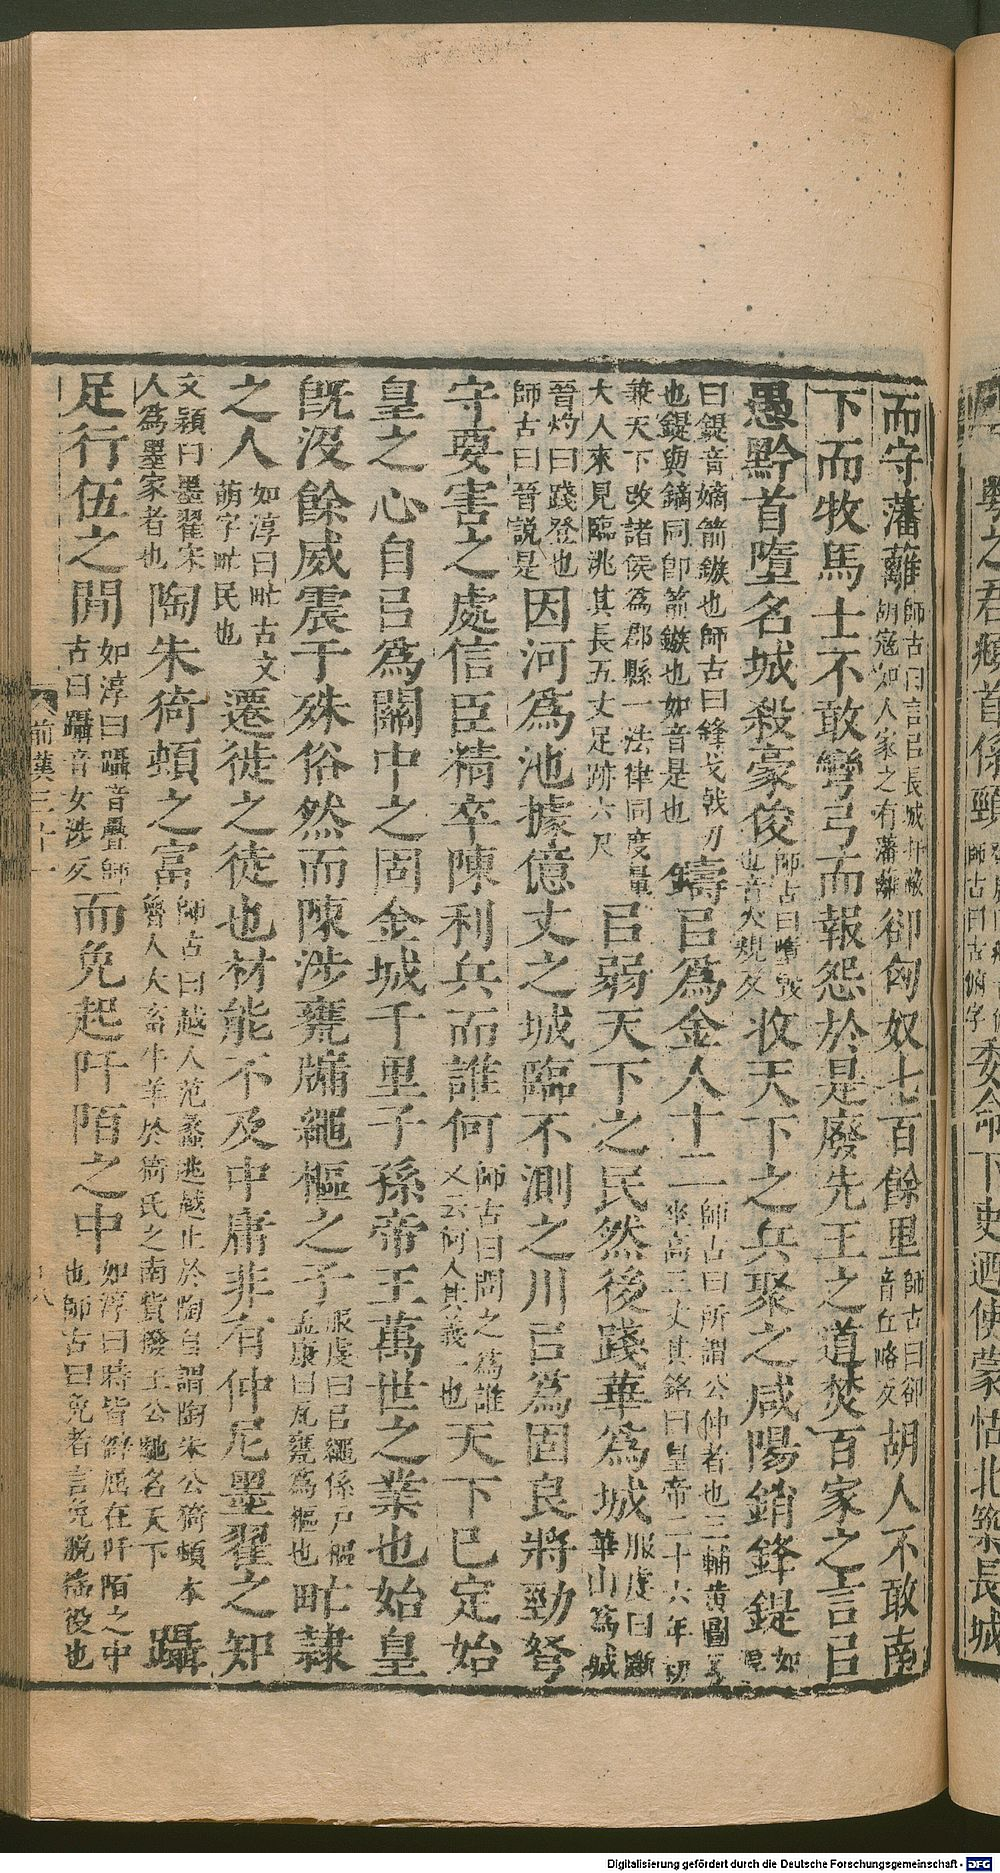 而守藩離師古曰言㠯長城扞蔽胡寇如人家之有藩離卻匈奴七百餘里師古曰卻音丘略反胡人不敢南
下而牧馬士不敢彎弓而報怨於是廢先王之道焚百家之言㠯
愚黔首墮名城殺豪俊師古曰墮毀也音火規反收天下之兵聚之咸陽銷鋒鍉如
曰鍉音嫡箭鏃也師古曰鋒戈戟刃也鍉與鏑同即箭鏃也如音是也鑄㠯爲金人十二師古曰所謂公仲者也三輔黃圖坐高三丈其銘曰皇帝二十六年初
兼天下改諸侯爲郡縣一法律同度量大人來見臨洮其長五丈足跡六尺㠯弱天下之民然後踐華爲城服虔曰斷華山爲城
晉灼曰踐登也師古曰晉說是因河爲池據億丈之城臨不測之川㠯爲固良將勁弩
守要害之處信臣精卒陳利兵而誰何師古曰問之爲誰又云何人其義一也天下已定始
皇之心自㠯爲關中之固金城千里子孫帝王萬世之業也始皇
旣沒餘威震于殊俗然而陳涉甕牖繩樞之子服虔曰㠯繩係戶樞孟康曰瓦甕爲樞也甿隷
之人如淳曰甿古文萌字甿民也遷徙之徒也材能不及中庸非有仲尼墨翟之知
文穎曰墨翟宋人爲墨家者也陶朱猗頓之富師古曰越人范蠡逃越止於陶自謂陶朱公猗頓本魯人大畜牛羊於猗氏之南貲擬王公馳名天下躡
足行伍之閒如淳曰躡音疊師古曰躡音女涉反而免起阡陌之中如淳曰時皆僻屈在阡陌之中也師古曰免者言免脫徭役也
前漢三十一
八
數之君頫首係頸師古曰古俯字委命下吏迺使蒙恬北築長城
Digitalisierung gefördert durch die Deutsche Forschungsgemeinschaft - DFG